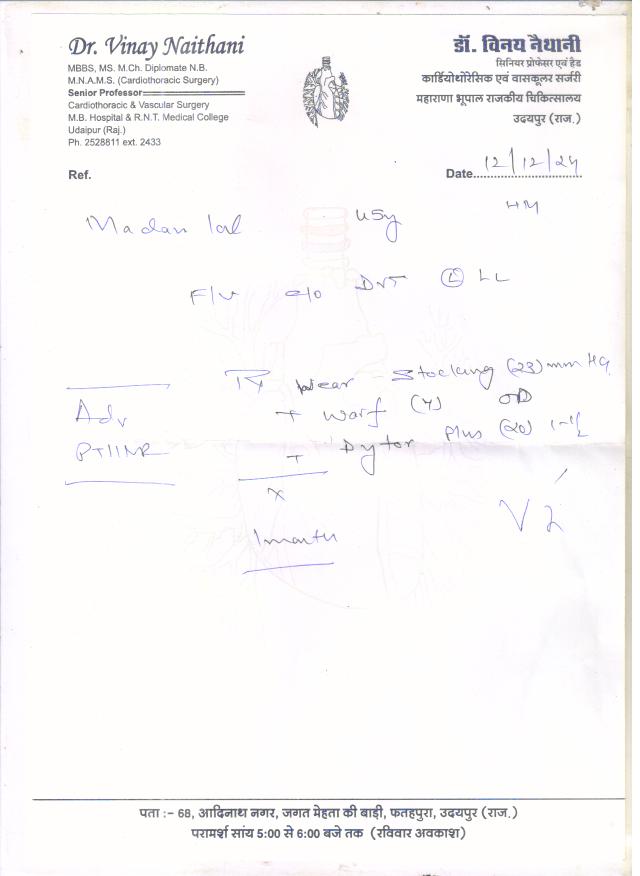 Dr. Vinay Naithani
MBBS, MS. M.Ch. Diplomate N.B.
M.N.A.M.S. (Cardiothoracic Surgery)
Senior Professor
Cardiothoracic & Vascular Surgery
M.B. Hospital & R.N.T. Medical College
Udaipur (Raj.)
Ph. 2528811 ext. 2433
डॉ. विनय नैथानी
सिनियर प्रोफेसर एवं हैड
कार्डियोथोरेसिक एवं वासकूलर सर्जरी
महाराणा भूपाल राजकीय चिकित्सालय
उदयपुर (राज.)
Ref.
Date 12/12/24
Madan lal 45y
F/U c/o DVT (L) LL
Rx wear - Stocking (23) mmHg
Adv
T Warf (4) OD
PT/INR
T Dytor Plus (20) 1-1/2
x
1 month
पता :– 68, आदिनाथ नगर, जगत मेहता की बाड़ी, फतहपुरा, उदयपुर (राज.)
परामर्श सांय 5:00 से 6:00 बजे तक (रविवार अवकाश)